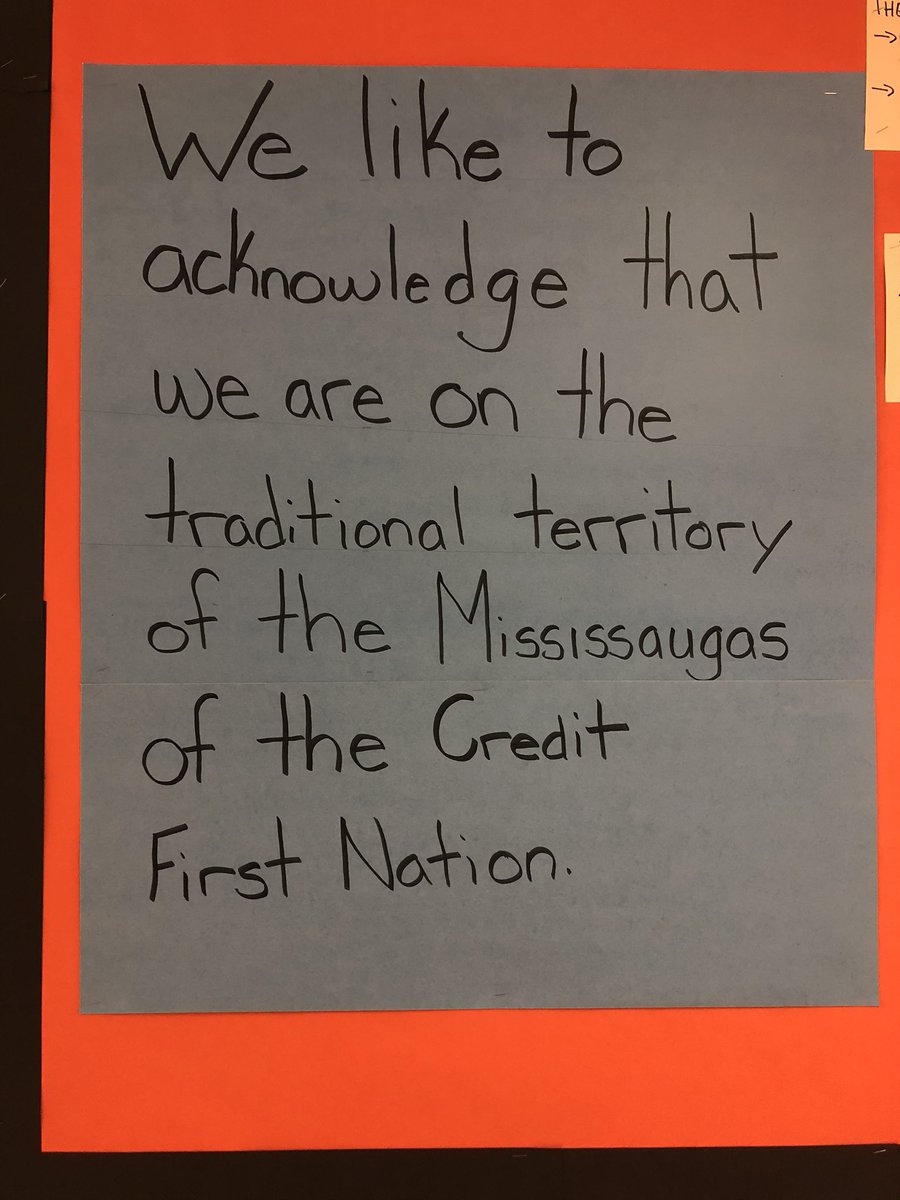 We like to
acknowledge that
we are on the
traditional territory
of the Mississaugas
of the Credit
First Nation.
THE
→
→